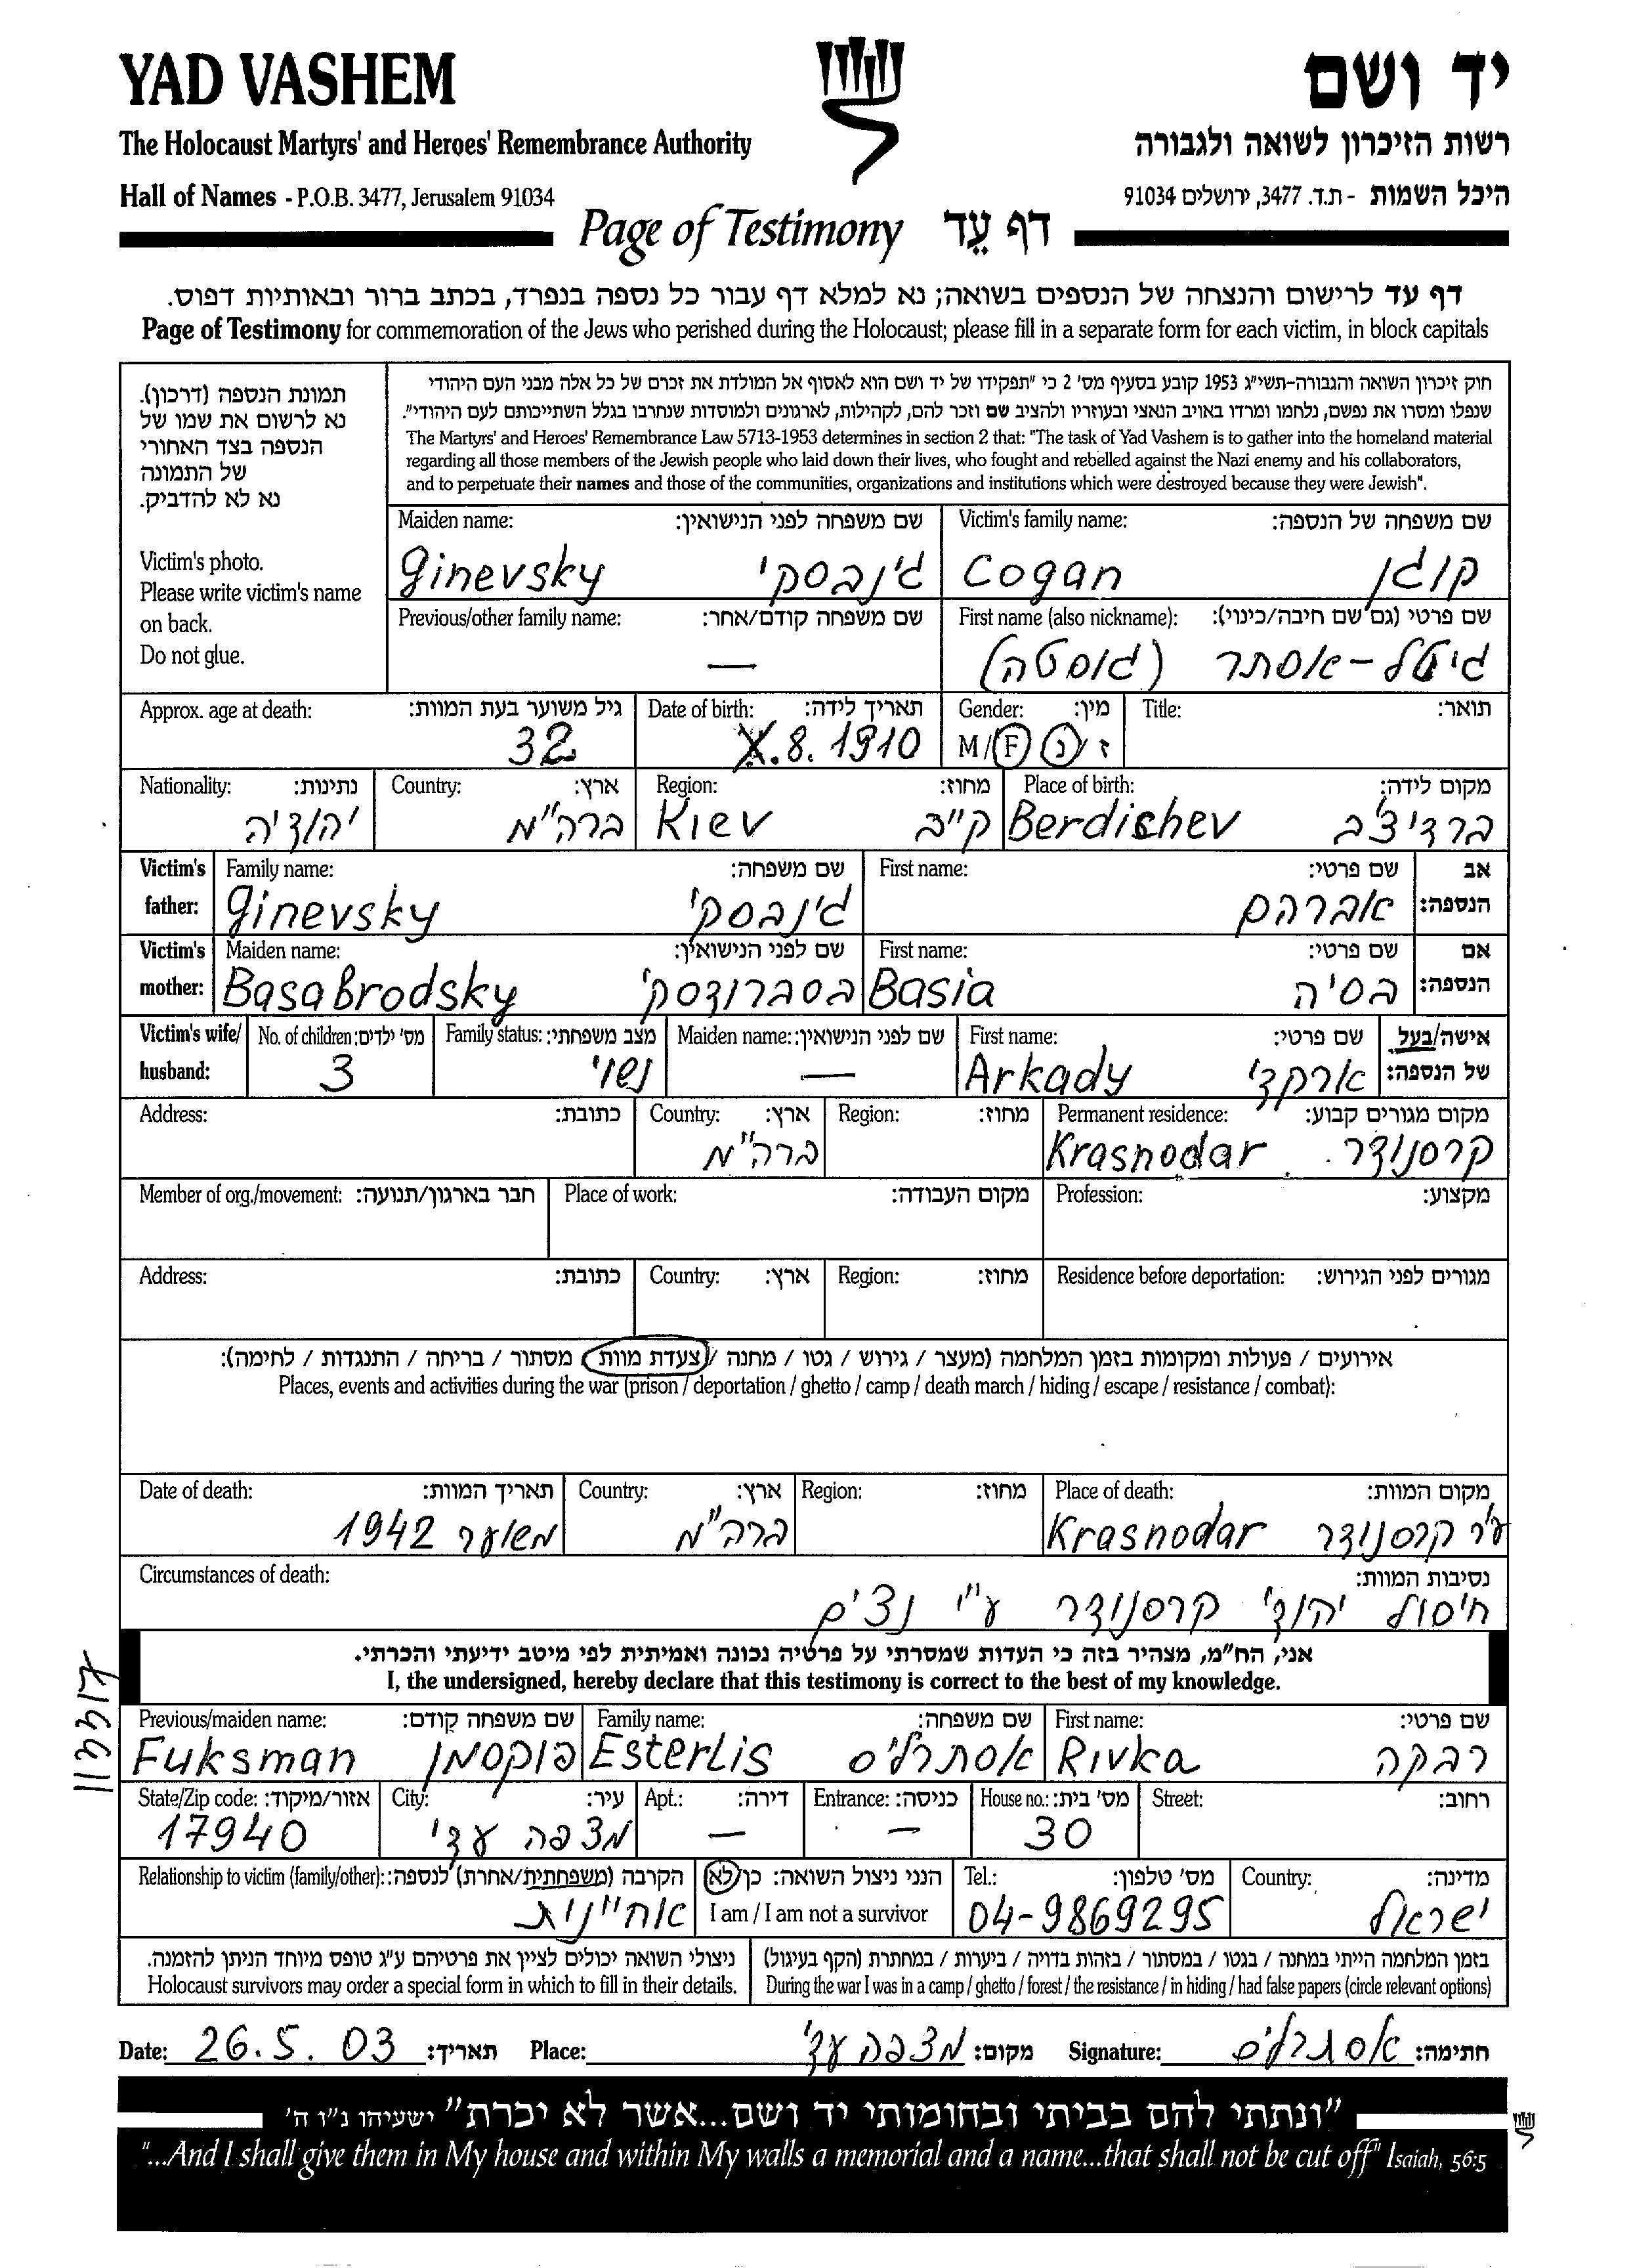 YAD VASHEM יד ושם
The Holocaust Martyrs' and Heroes' Remembrance Authority רשות הזיכרון לשואה ולגבורה
Hall of Names - P.O.B. 3477, Jerusalem 91034 היכל השמות - ת.ד. 3477, ירושלים 91034
Page of Testimony דף עֵד
דף עד לרישום והנצחה של הנספים בשואה; נא למלא דף עבור כל נספה בנפרד, בכתב ברור ובאותיות דפוס.
Page of Testimony for commemoration of the Jews who perished during the Holocaust; please fill in a separate form for each victim, in block capitals
תמונת הנספה (דרכון).
נא לרשום את שמו של
הנספה בצד האחורי
של התמונה
נא לא להדביק.
Victim's photo.
Please write victim's name
on back.
Do not glue.
חוק זיכרון השואה והגבורה-תשי"ג 1953 קובע בסעיף מס' 2 כי "תפקידו של יד ושם הוא לאסוף אל המולדת את זכרם של כל אלה מבני העם היהודי
שנפלו ומסרו את נפשם, נלחמו ומרדו באויב הנאצי ובעוזריו ולהציב שם וזכר להם, לקהילות, לארגונים ולמוסדות שנחרבו בגלל השתייכותם לעם היהודי".
The Martyrs' and Heroes' Remembrance Law 5713-1953 determines in section 2 that: "The task of Yad Vashem is to gather into the homeland material
regarding all those members of the Jewish people who laid down their lives, who fought and rebelled against the Nazi enemy and his collaborators,
and to perpetuate their names and those of the communities, organizations and institutions which were destroyed because they were Jewish".
Maiden name: שם משפחה לפני הנישואין: Victim's family name: שם משפחה של הנספה:
Ginevsky ג'נבסקי Cogan קוגן
Previous/other family name: שם משפחה קודם/אחר: First name (also nickname): שם פרטי (גם שם חיבה/כינוי):
— גיטל-אסתר (גוסטה)
Approx. age at death: גיל משוער בעת המוות: Date of birth: תאריך לידה: Gender: מין: Title: תואר:
32 X.8.1910 M/F ז/נ
Nationality: נתינות: Country: ארץ: Region: מחוז: Place of birth: מקום לידה:
יהודיה ברה"מ Kiev קייב Berdichev ברדיצ'ב
Victim's father: Family name: שם משפחה: First name: שם פרטי: אב הנספה:
Ginevsky ג'נבסקי אברהם
Victim's mother: Maiden name: שם לפני הנישואין: First name: שם פרטי: אם הנספה:
BasaBrodsky בסברודסקי Basia בסיה
Victim's wife/ husband: No. of children: מס' ילדים: Family status: מצב משפחתי: Maiden name: שם לפני הנישואין: First name: שם פרטי: אישה/בעל של הנספה:
3 נשוי — Arkady ארקדי
Address: כתובת: Country: ארץ: Region: מחוז: Permanent residence: מקום מגורים קבוע:
ברה"מ Krasnodar קרסנודר
Member of org./movement: חבר בארגון/תנועה: Place of work: מקום העבודה: Profession: מקצוע:
Address: כתובת: Country: ארץ: Region: מחוז: Residence before deportation: מגורים לפני הגירוש:
אירועים / פעולות ומקומות בזמן המלחמה (מעצר / גירוש / גטו / מחנה / צעדת מוות / מסתור / בריחה / התנגדות / לחימה):
Places, events and activities during the war (prison / deportation / ghetto / camp / death march / hiding / escape / resistance / combat):
Date of death: תאריך המוות: Country: ארץ: Region: מחוז: Place of death: מקום המוות:
משוער 1942 ברה"מ Krasnodar ע'ר קרסנודר
Circumstances of death: נסיבות המוות:
חיסול יהודי קרסנודר ע"י נצים
אני, הח"מ, מצהיר בזה כי העדות שמסרתי על פרטיה נכונה ואמיתית לפי מיטב ידיעתי והכרתי.
I, the undersigned, hereby declare that this testimony is correct to the best of my knowledge.
Previous/maiden name: שם משפחה קודם: Family name: שם משפחה: First name: שם פרטי:
Fuksman פוקסמן Esterlis אסתרליס Rivka רבקה
State/Zip code: אזור/מיקוד: City: עיר: Apt.: דירה: Entrance: כניסה: House no.: מס' בית: Street: רחוב:
17940 מצפה עדי — — 30
Relationship to victim (family/other): הקרבה (משפחתית/אחרת) לנספה: הנני ניצול השואה: כן/לא Tel.: מס' טלפון: Country: מדינה:
אחיינית I am / I am not a survivor 04-9869295 ישראל
ניצולי השואה יכולים לציין את פרטיהם ע"ג טופס מיוחד הניתן להזמנה. בזמן המלחמה הייתי במחנה / בגטו / במסתור / בזהות בדויה / ביערות / במחתרת (הקף בעיגול)
Holocaust survivors may order a special form in which to fill in their details. During the war I was in a camp / ghetto / forest / the resistance / in hiding / had false papers (circle relevant options)
Date: 26.5.03 תאריך: Place: מצפה עדי מקום: Signature: אסתרליס חתימה:
"ונתתי להם בביתי ובחומותי יד ושם...אשר לא יכרת" ישעיהו נ"ו ה'
"...And I shall give them in My house and within My walls a memorial and a name...that shall not be cut off" Isaiah, 56:5